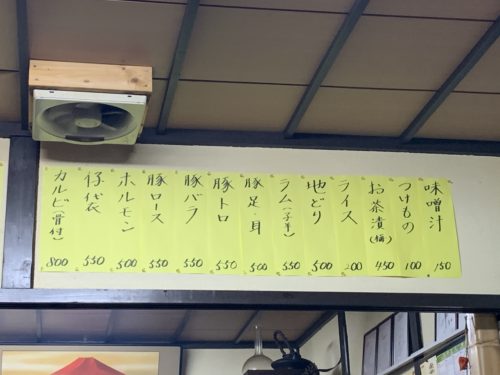 味噌汁 150
つけもの 100
お茶漬(梅) 450
ライス 200
地どり 500
ラム(子羊) 550
豚足・身 500
豚トロ 550
豚バラ 550
豚ロース 550
ホルモン 500
子袋 550
カルビ(骨付) 800